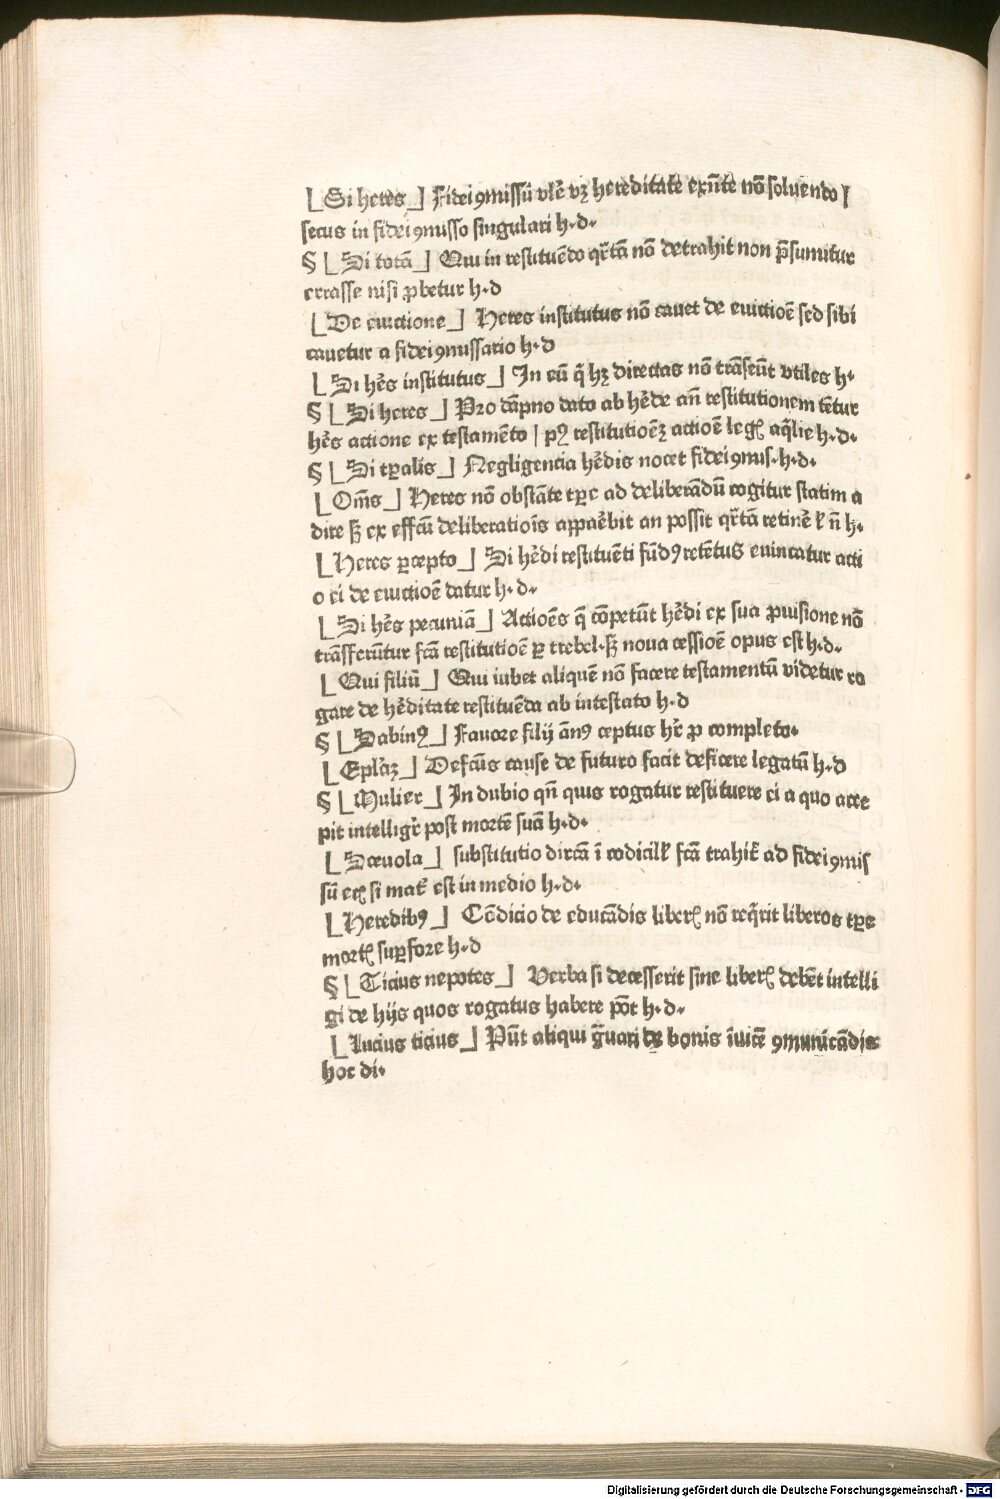 ⌊Si heres⌋ Fidei ꝯmissū vlē vꝫ hereditate exn̄te nō soluendo |
secus in fidei ꝯmisso singulari h.d.
§ ⌊Si totā⌋ Qui in restituēdo qr̄tā nō detrahit non p̄sumitur
errasse nisi ꝓbetur h.d
⌊De euictione⌋ Heres institutus nō cauet de euictioē sed sibi
cauetur a fidei ꝯmissario h.d
⌊Si hēs institutus⌋ In eū q̄ hꝫ directas nō trāseūt vtiles h.
§ ⌊Si heres⌋ Pro dāpno dato ab hēde an̄ restitutionem tētur
hēs actione ex testamēto | pꝰ restitutioēꝫ actioē legꝭ aq̄lie h.d.
§ ⌊Si tꝑalis⌋ Negligencia hēdis nocet fidei ꝯmis.h.d.
⌊Om̄s⌋ Heres nō obstāte tꝑe ad deliberādū cogitur statim a
dire sꝫ ex effcū deliberatiōis appaēbit an possit qr̄tā retinē ł n̄ h.
⌊Heres ꝑcepto⌋ Si hēdi restituēti fūdꝰ retētus euincatur acti
o ei de euictioē datur h.d.
⌊Si hēs pecuniā⌋ Actioēs q̄ cōpetūt hēdi ex sua ꝓuisione nō
trāsferūtur fcā restitutioē ꝑ trebel.sꝫ noua cessioē opus est h.d.
⌊Qui filiū⌋ Qui iubet aliquē nō facere testamentū videtur ro
gare de hēditate restituēda ab intestato h.d
§ ⌊Sabinꝰ⌋ Fauore filij ānꝰ ceptus hr̄ ꝓ completo.
⌊Eplāꝫ⌋ Defcūs cause de futuro facit deficere legatū h.d
§ ⌊Mulier⌋ In dubio qn̄ quis rogatur restituere ei a quo acce
pit intelligr̄ post mortē suā h.d.
⌊Sceuola⌋ substitutio dircā ī codicilł fcā trahit̄ ad fidei ꝯmis
sū ecꝭ si mat̄ est in medio h.d.
⌊Heredibꝰ⌋ Cōdicio de educādis liberꝭ nō req̄rit liberos tꝑe
mortꝭ suꝑfore h.d
§ ⌊Ticius nepotes⌋ Verba si decesserit sine liberꝭ debēt intelli
gi de hijs quos rogatus habere pōt h.d.
⌊Lucius ticius⌋ Pn̄t aliqui g̃uari de bonis īuicē ꝯmunicādis
hoc di.
Digitalisierung gefördert durch die Deutsche Forschungsgemeinschaft - DFG